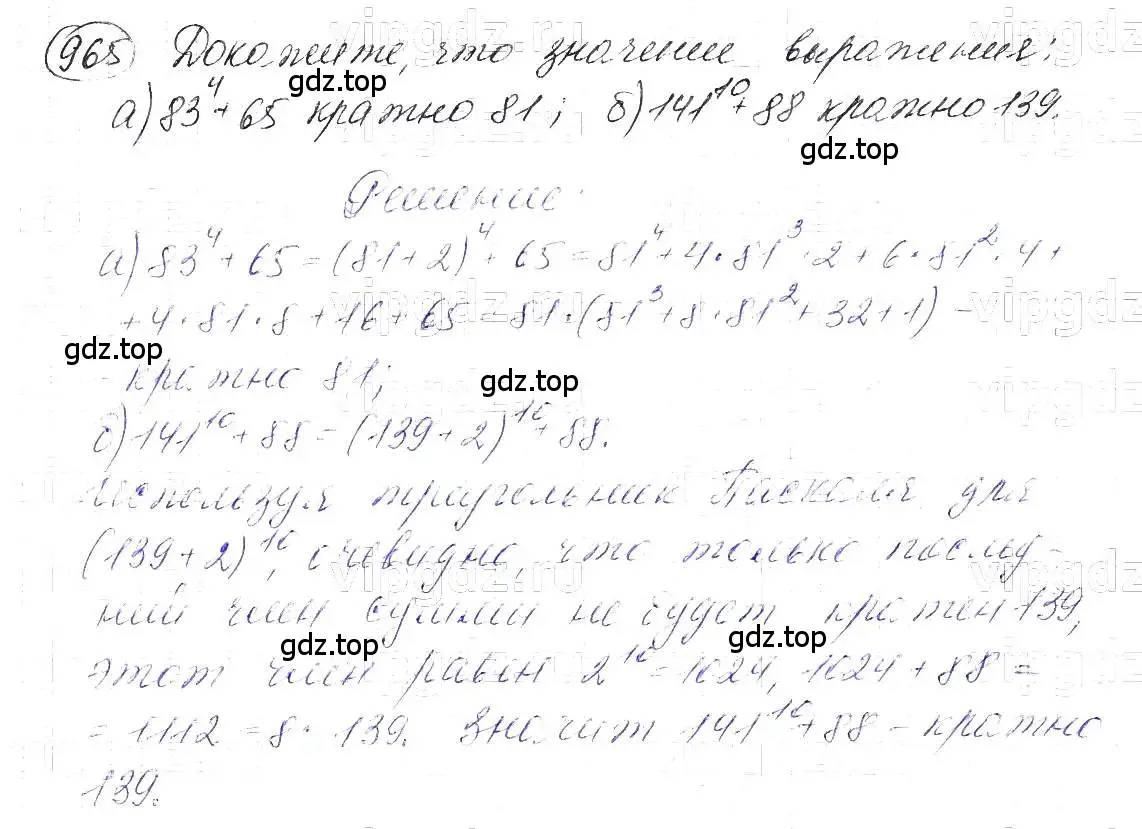 965 Докажите, что значение выражения:
а) 83⁴ + 65 кратно 81; б) 141¹⁰ + 88 кратно 139.
gdz.top
gdz.top
Решение:
а) 83⁴ + 65 = (81+2)⁴ + 65 = 81⁴ + 4·81³·2 + 6·81²·4 +
+ 4·81·8 + 16 + 65 = 81·(81³ + 8·81² + 32 + 1) –
gdz.top
- кратно 81;
gdz.top
б) 141¹⁰ + 88 = (139+2)¹⁰ + 88.
Используя треугольник Паскаля для
(139+2)¹⁰, очевидно, что только послед-
ний член суммы не будет кратен 139,
gdz.top
gdz.top
этот член равен 2¹⁰ = 1024, 1024 + 88 =
= 1112 = 8 · 139. Значит 141¹⁰ + 88 – кратно
139.